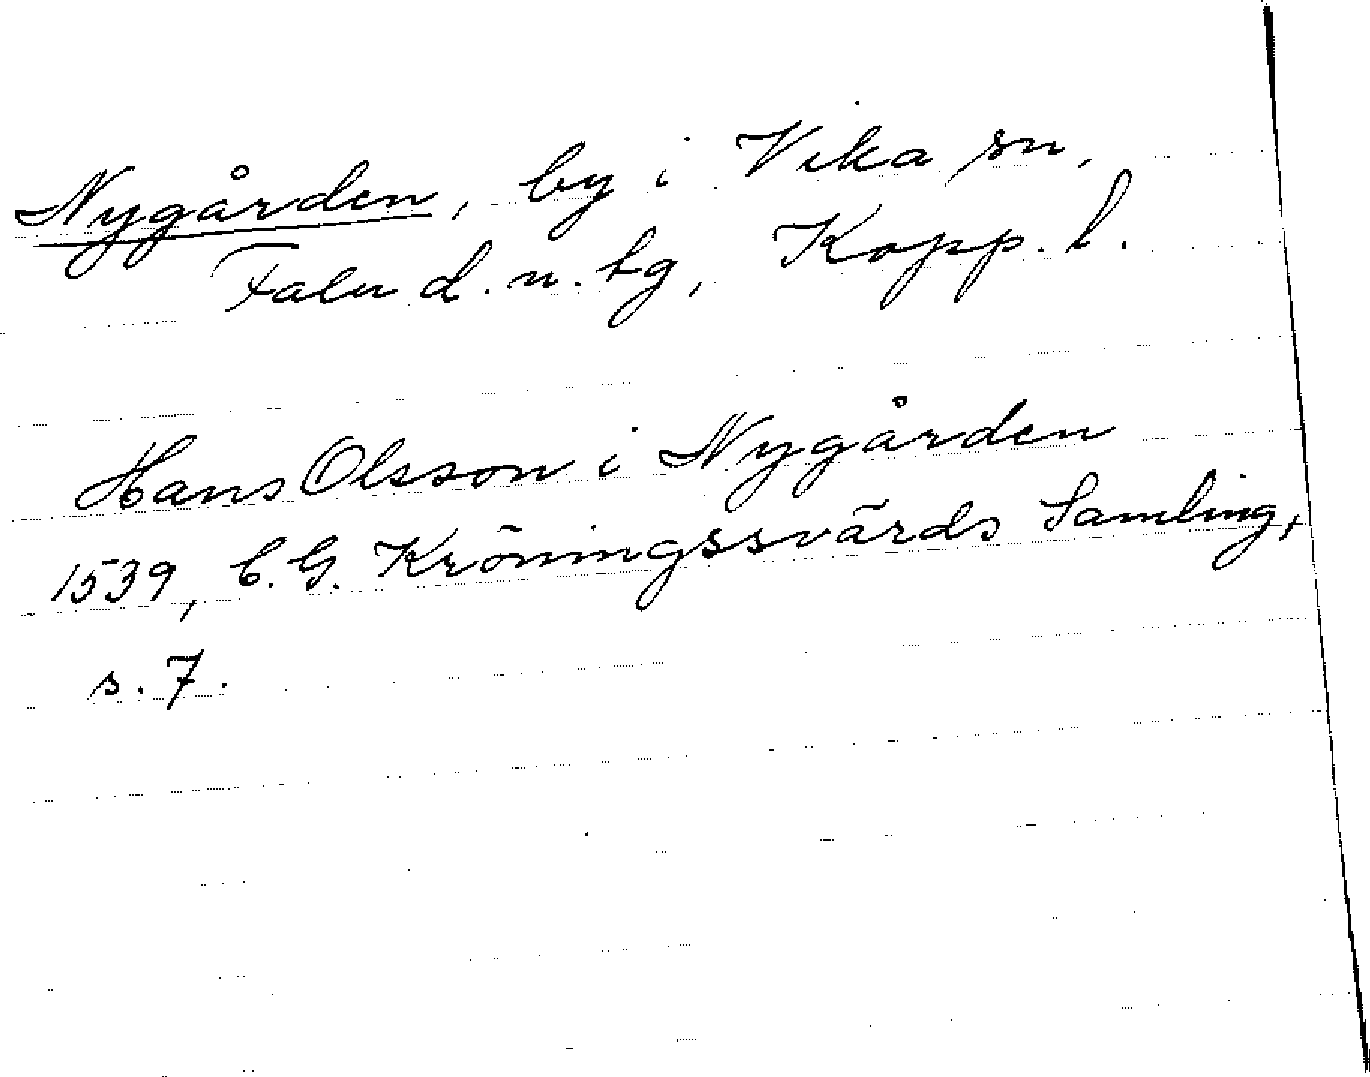 Nygården, by i Vika sn,
Falu d. n. tg, Kopp. l.
Hans Olsson i Nygården
1539, C. G. Kröningssvärds Samling,
s. 7.